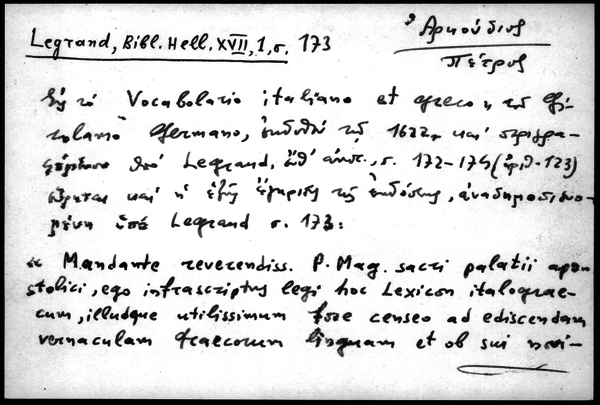 Legrand, Bibl. Hell. XVII, 1, σ. 173
Ἀρκούδιος
Πέτρος
Εἰς τὸ Vocabolario italiano et greco τοῦ Gi-
rolamo Germano, ἐκδοθὲν τῷ 1622, καὶ περιγρα-
φόμενον ὑπὸ Legrand, ἔνθ' ἀνωτ., σ. 172-174 (ἀριθ. 123)
καὶ ἡ ἑξῆς ἔγκρισις τῆς ἐκδόσεως, ἀναδημοσιευο-
μένη ὑπὸ Legrand σ. 173:
« Mandante reverendiss. P. Mag. sacri palatii apo-
stolici, ego infrascriptus legi hoc Lexicon italograe-
cum, illudque utilissimum fore censeo ad ediscendam
vernaculam Graecorum linguam et ob sui novi-